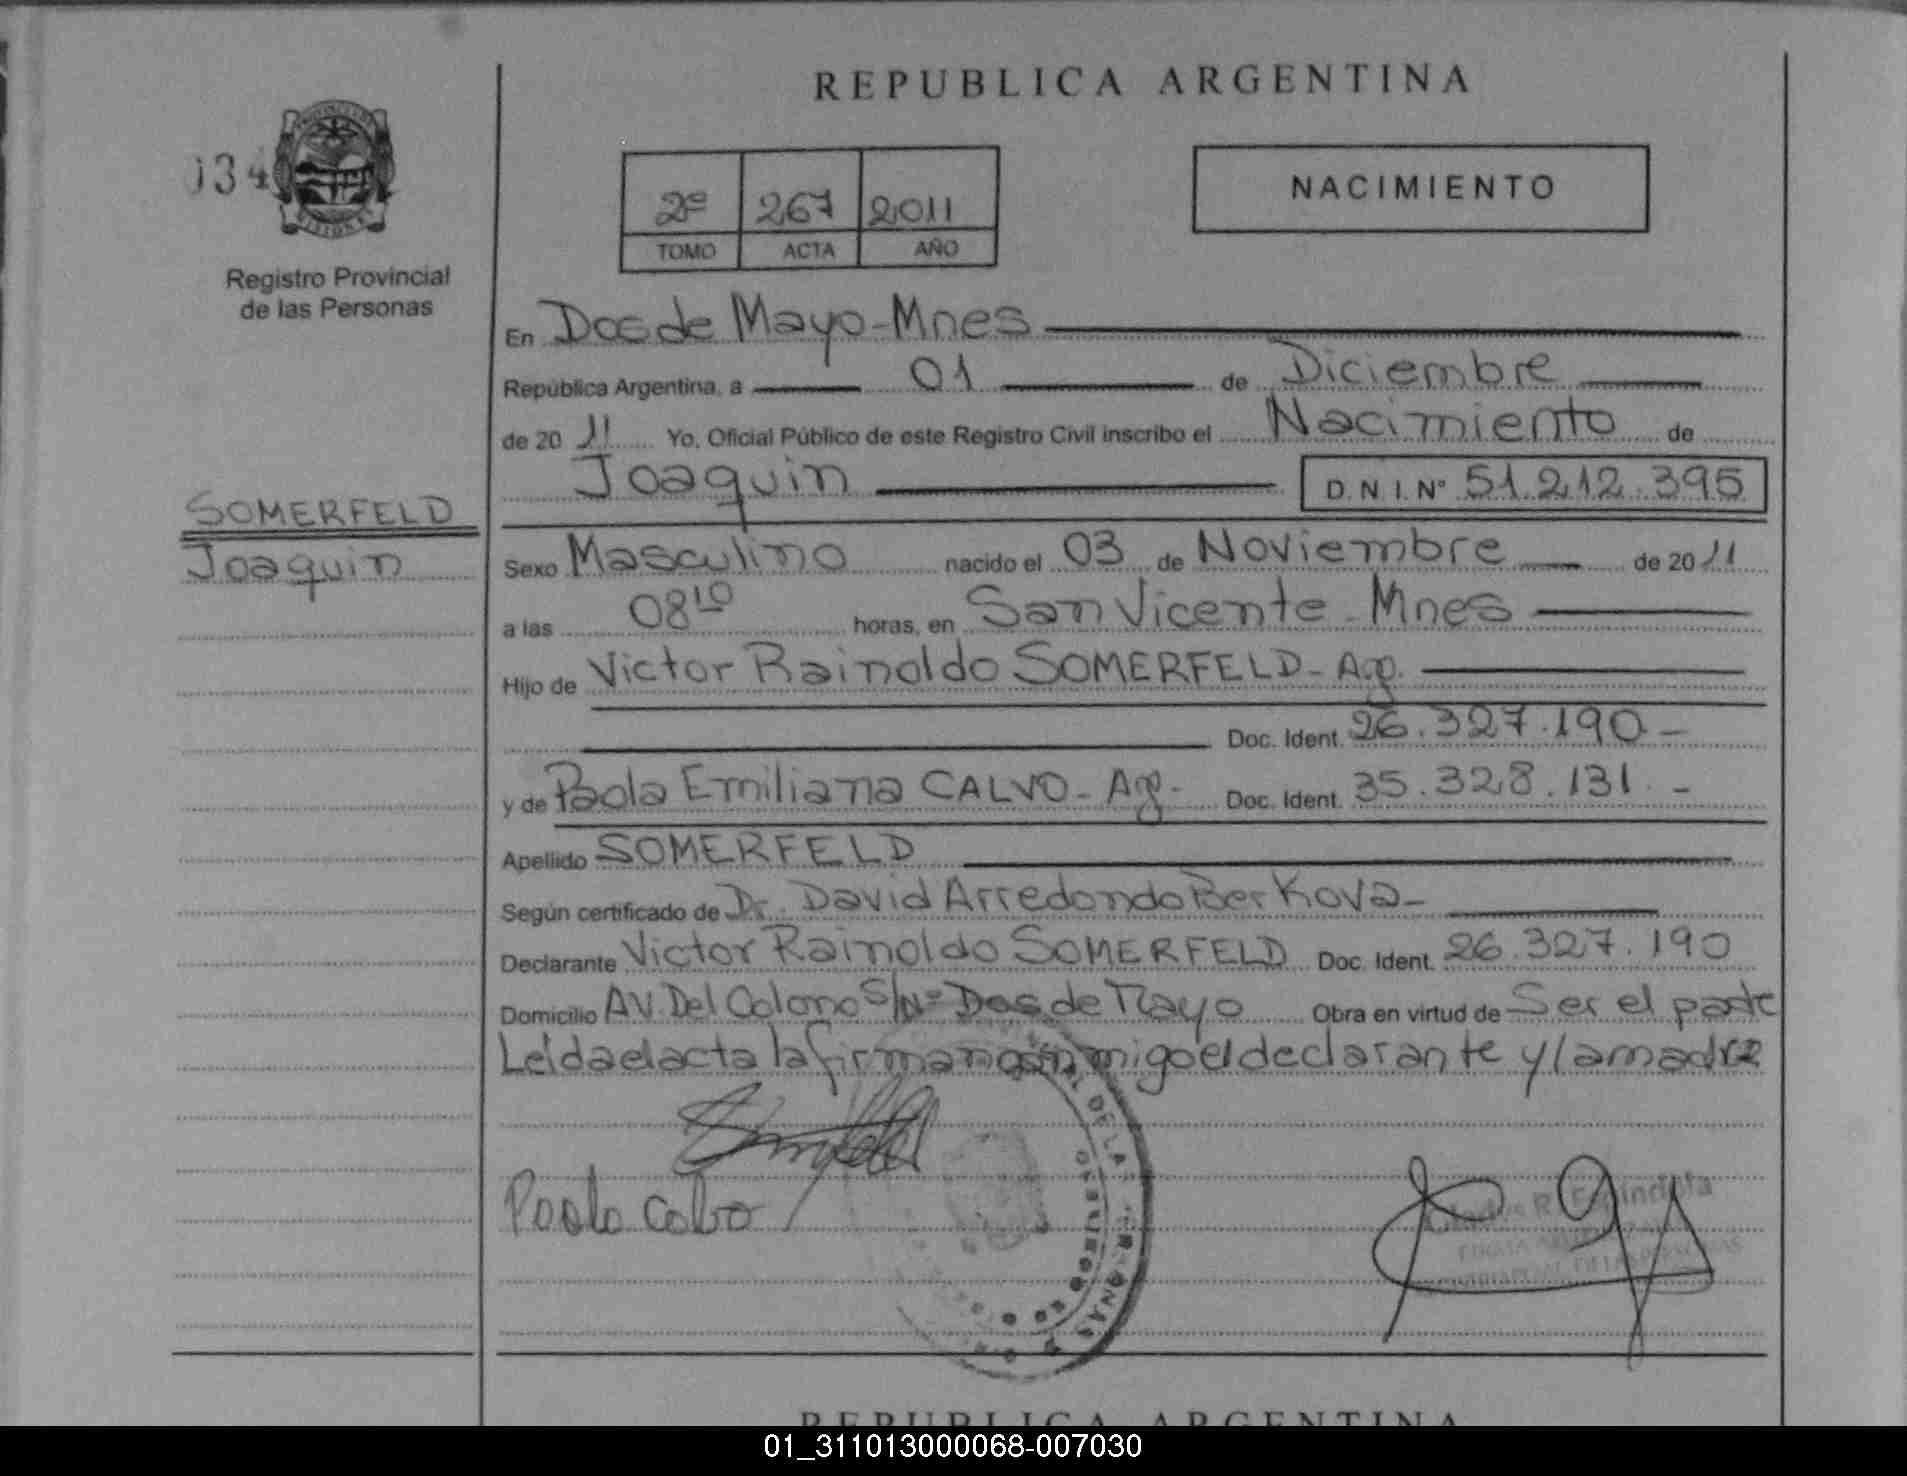 REPUBLICA ARGENTINA
134
2º 267 2011
TOMO ACTA AÑO
NACIMIENTO
Registro Provincial
de las Personas
En Dos de Mayo - Mnes
República Argentina, a 01 de Diciembre
de 2011 Yo, Oficial Público de este Registro Civil inscribo el Nacimiento de
Joaquin D.N.I. Nº 51.212.395
SOMERFELD
Joaquin
Sexo Masculino nacido el 03 de Noviembre de 2011
a las 08 10 horas, en San Vicente - Mnes
Hijo de Victor Rainoldo SOMERFELD - Ag.
Doc. Ident. 26.327.190 -
y de Paola Emiliana CALVO - Ag - Doc. Ident. 35.328.131. -
Apellido SOMERFELD
Según certificado de Dr. David Arredondo Ber Kova -
Declarante Victor Rainoldo SOMERFELD Doc. Ident. 26.327.190
Domicilio AV. Del Colono S/Nº Dos de Mayo Obra en virtud de Ser el padre
Leída el acta la firman conmigo el declarante y la madre
Paola Calvo
DE LAS PERSONAS
REPUBLICA ARGENTINA
01_311013000068-007030